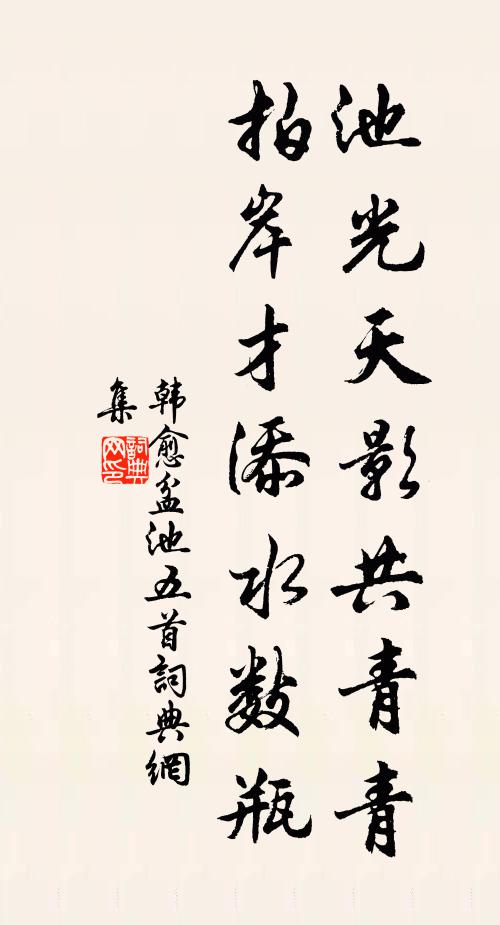 池光天影共青青
拍岸才添水数瓶
韩愈盆池五首詞典網
集
詞典
网印